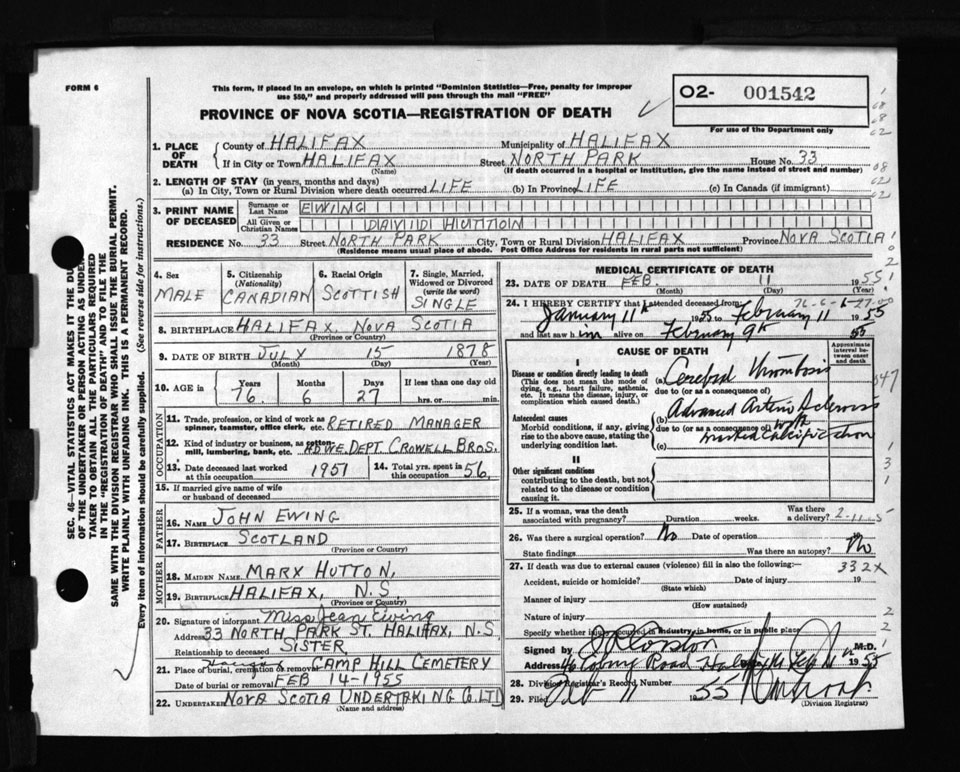 FORM 6
This form, if placed in an envelope, on which is printed "Dominion Statistics—Free, penalty for improper
use $50," and properly addressed will pass through the mail "FREE"
PROVINCE OF NOVA SCOTIA—REGISTRATION OF DEATH
O2- 001542
For use of the Department only
SEC. 46—VITAL STATISTICS ACT MAKES IT THE DUTY
OF THE UNDERTAKER OR PERSON ACTING AS UNDER-
TAKER TO OBTAIN ALL THE PARTICULARS REQUIRED
IN THE "REGISTRATION OF DEATH" AND TO FILE THE
SAME WITH THE DIVISION REGISTRAR WHO SHALL ISSUE THE BURIAL PERMIT.
WRITE PLAINLY WITH UNFADING INK. THIS IS A PERMANENT RECORD.
Every item of information should be carefully supplied. (See reverse side for instructions.)
1. PLACE OF DEATH County of HALIFAX Municipality of HALIFAX
If in City or Town HALIFAX Street NORTH PARK House No. 33
(Name) (If death occurred in a hospital or institution, give the name instead of street and number)
2. LENGTH OF STAY (in years, months and days)
(a) In City, Town or Rural Division where death occurred LIFE (b) In Province LIFE (c) In Canada (if immigrant)
3. PRINT NAME OF DECEASED Surname or Last Name EWING
All Given or Christian Names DAVID HUTTON
RESIDENCE No. 33 Street NORTH PARK City, Town or Rural Division HALIFAX Province NOVA SCOTIA
(Residence means usual place of abode. Post Office Address for residents in rural parts not sufficient)
4. Sex MALE
5. Citizenship (Nationality) CANADIAN
6. Racial Origin SCOTTISH
7. Single, Married, Widowed or Divorced (write the word) SINGLE
8. BIRTHPLACE HALIFAX, NOVA SCOTIA
(Province or Country)
9. DATE OF BIRTH JULY 15 1878
(Month) (Day) (Year)
10. AGE in Years 76. Months 6 Days 27 If less than one day old
hrs. or min.
OCCUPATION
11. Trade, profession, or kind of work as spinner, teamster, office clerk, etc. RETIRED MANAGER
12. Kind of industry or business, as cotton-mill, lumbering, bank, etc. HDWE. DEPT. CROWELL BROS.
13. Date deceased last worked at this occupation 1951 14. Total yrs. spent in this occupation 56.
15. If married give name of wife or husband of deceased
FATHER
16. NAME JOHN EWING
17. BIRTHPLACE SCOTLAND
(Province or Country)
MOTHER
18. MAIDEN NAME MARY HUTTON,
19. BIRTHPLACE HALIFAX, N.S.
(Province or Country)
20. Signature of informant Miss Jean Ewing
Address 33 NORTH PARK ST. HALIFAX, N.S.
Relationship to deceased SISTER
21. Place of burial, cremation or removal CAMP HILL CEMETERY
Date of burial or removal FEB 14-1955
22. UNDERTAKER NOVA SCOTIA UNDERTAKING CO. LTD
(Name and address)
MEDICAL CERTIFICATE OF DEATH
23. DATE OF DEATH FEB. 11 1955
(Month) (Day) (Year)
76-6-27-00
24. I HEREBY CERTIFY that I attended deceased from:
January 11th 1955 to February 11 1955
and last saw him alive on February 9th 55
CAUSE OF DEATH
Approximate interval between onset and death
I
Disease or condition directly leading to death (a) Cerebral Thrombosis
(This does not mean the mode of dying, e.g., heart failure, asthenia, etc. It means the disease, injury, or complication which caused death.)
due to (or as a consequence of)
Antecedent causes (b) Advanced Arterio Sclerosis
Morbid conditions, if any, giving rise to the above cause, stating the underlying condition last.
due to (or as a consequence of) with
(c) marked Calcification
II
Other significant conditions contributing to the death, but not related to the disease or condition causing it.
25. If a woman, was the death associated with pregnancy? Duration weeks. Was there a delivery? 2-11-5
26. Was there a surgical operation? No Date of operation
State findings Was there an autopsy? No
27. If death was due to external causes (violence) fill in also the following:— 332X
Accident, suicide or homicide? Date of injury 19
(State which)
Manner of injury
(How sustained)
Nature of injury
Specify whether injury occurred in industry, in home, or in public place
Signed by M.D.
Address 46 Coburg Road Halifax Feb 11 1955
28. Division Registrar's Record Number
29. Filed Feb 11 1955
(Division Registrar)